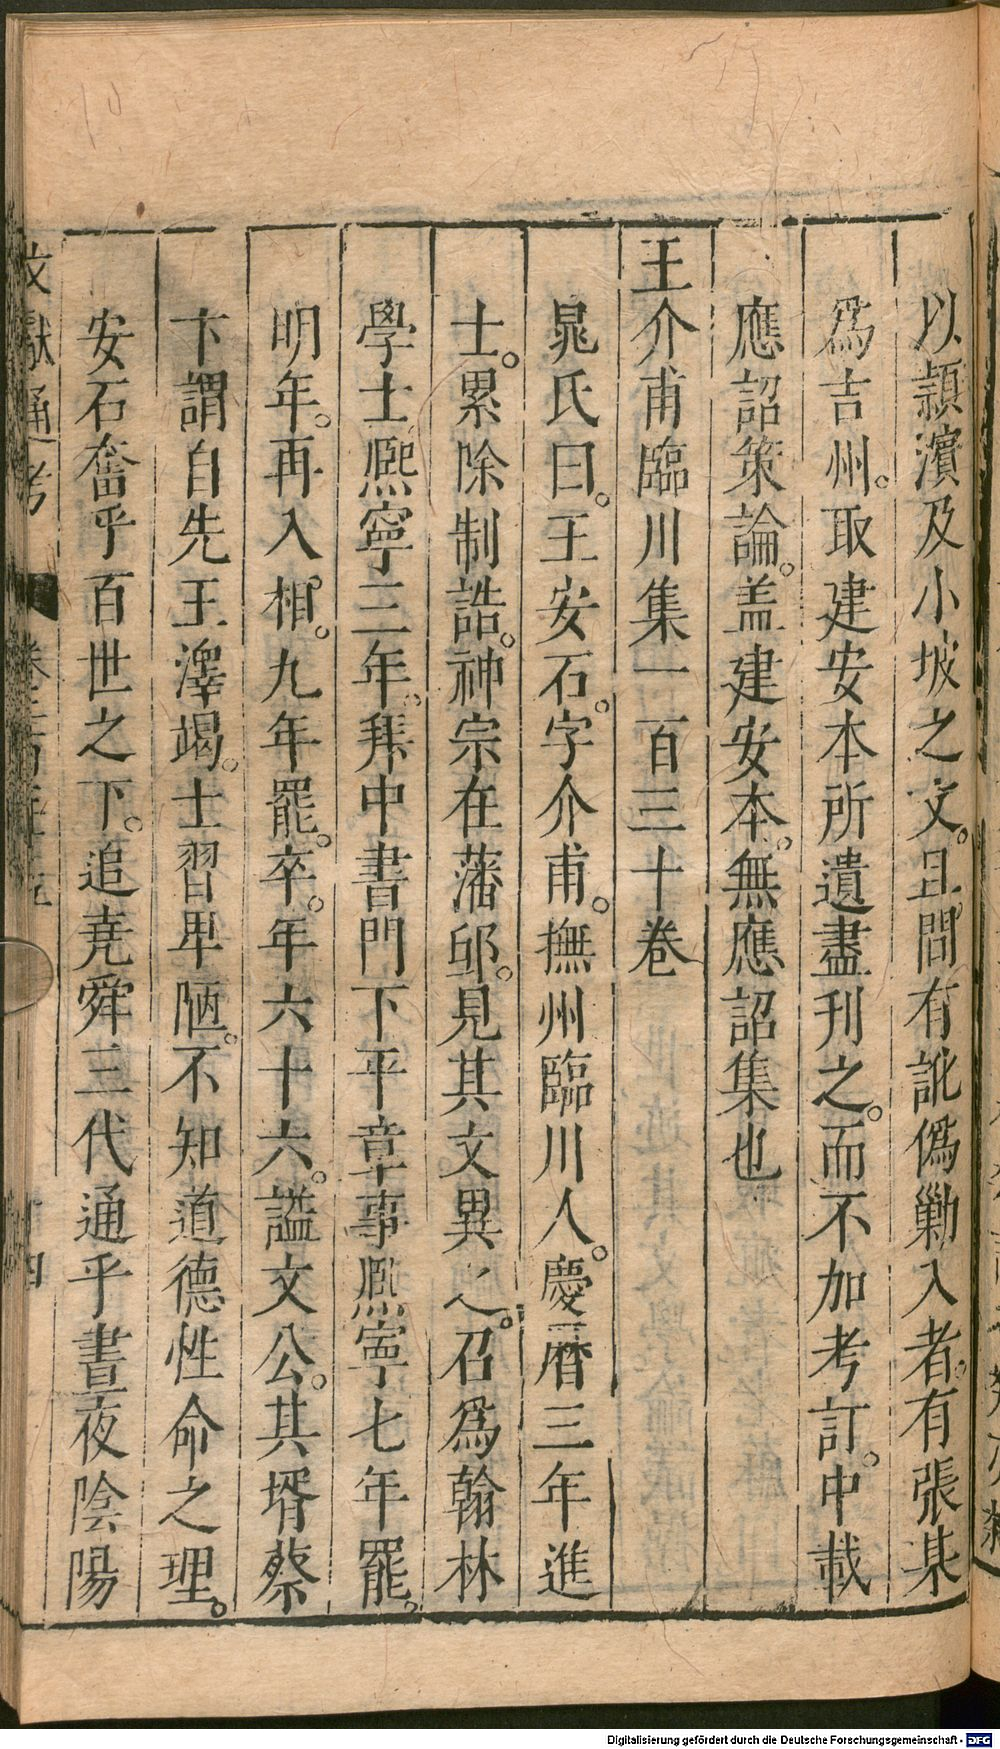 以潁濱及小坡之文。且間有訛僞勦入者。有張某
爲吉州。取建安本所遺盡刊之。而不加考訂。中載
應詔策論。盖建安本。無應詔集也
王介甫臨川集一百三十卷
晁氏曰。王安石。字介甫。撫州臨川人。慶曆三年進
士。累除制誥。神宗在藩邸。見其文異之。召爲翰林
學士熈寧二年。拜中書門下平章事熈寧七年罷。
明年。再入相。九年罷。卒。年六十六。謚文公。其壻蔡
卞謂自先王澤竭。士習卑陋。不知道德性命之理。
安石奮乎百世之下。追堯舜三代通乎晝夜陰陽
文獻通考
Digitalisierung gefördert durch die Deutsche Forschungsgemeinschaft - DFG